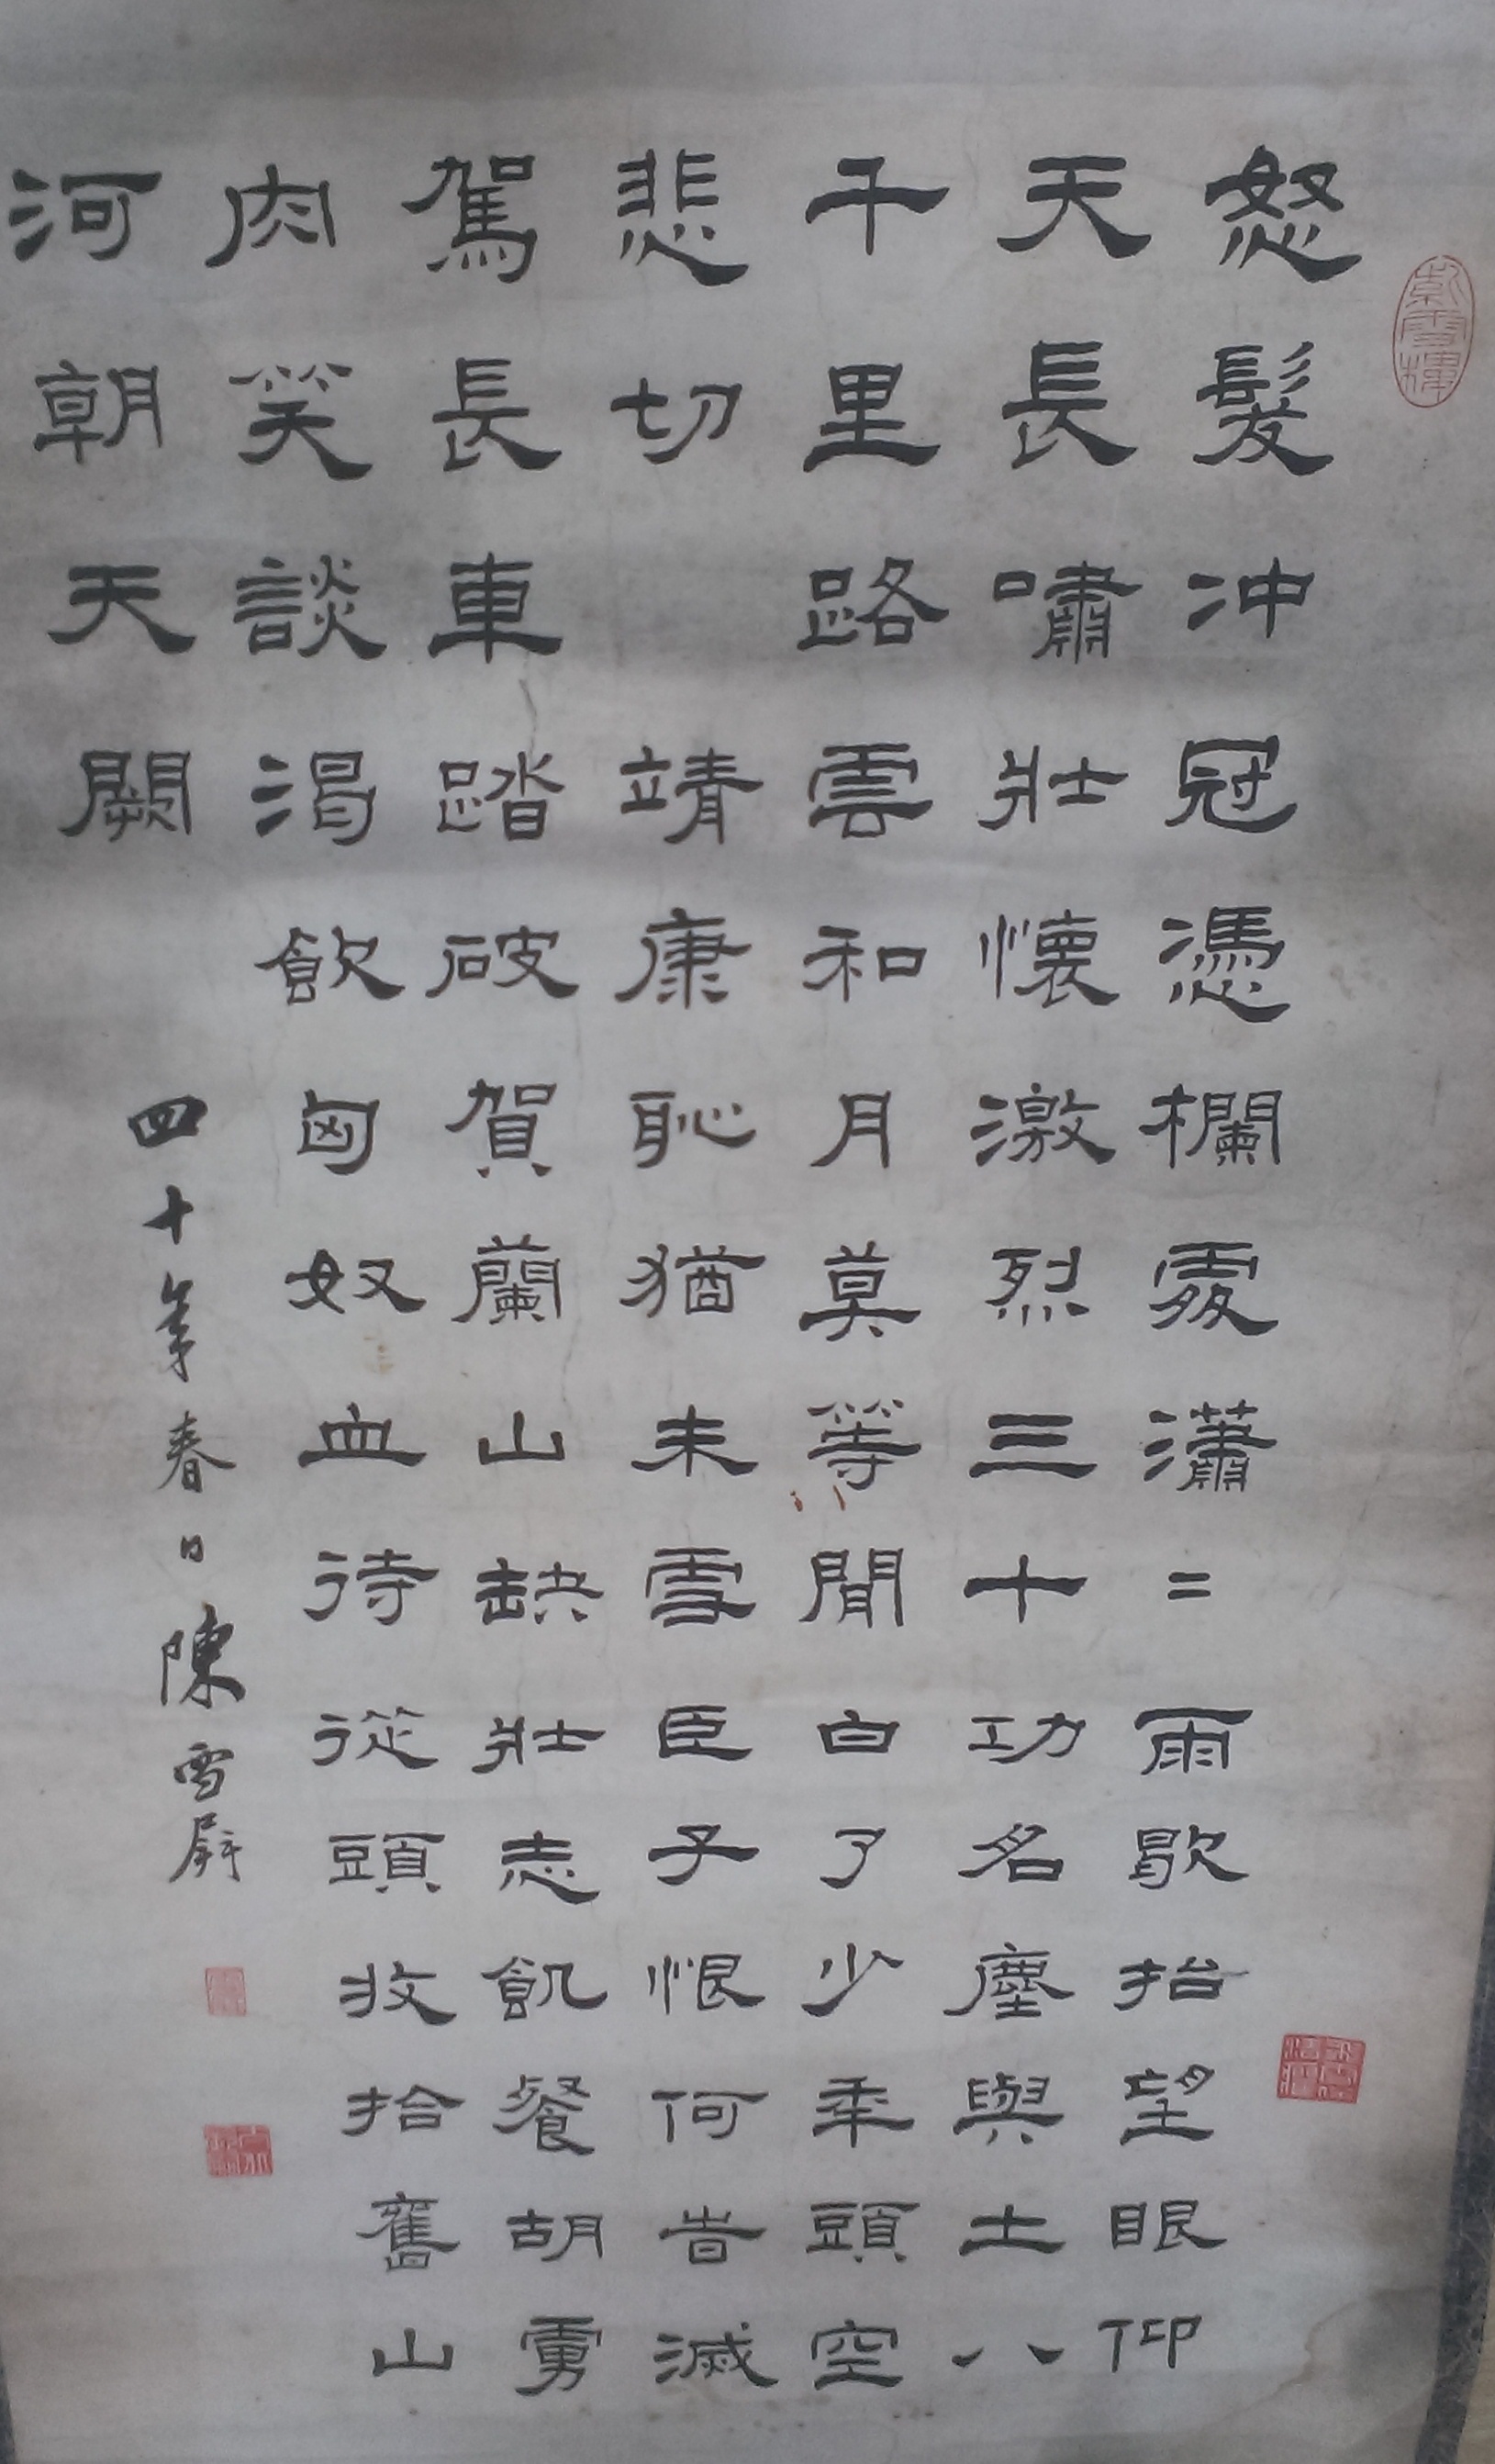 怒髮冲冠憑欄處瀟=雨歇抬望眼仰
天長嘯壯懷激烈三十功名塵與土八
千里路雲和月莫等閒白了少年頭空
悲切 靖康恥猶未雪臣子恨何旹滅
駕長車踏破賀蘭山缺壯志飢餐胡虜
肉笑談渴飲匈奴血待從頭收拾舊山
河朝天闕
四十年春日陳雪屏